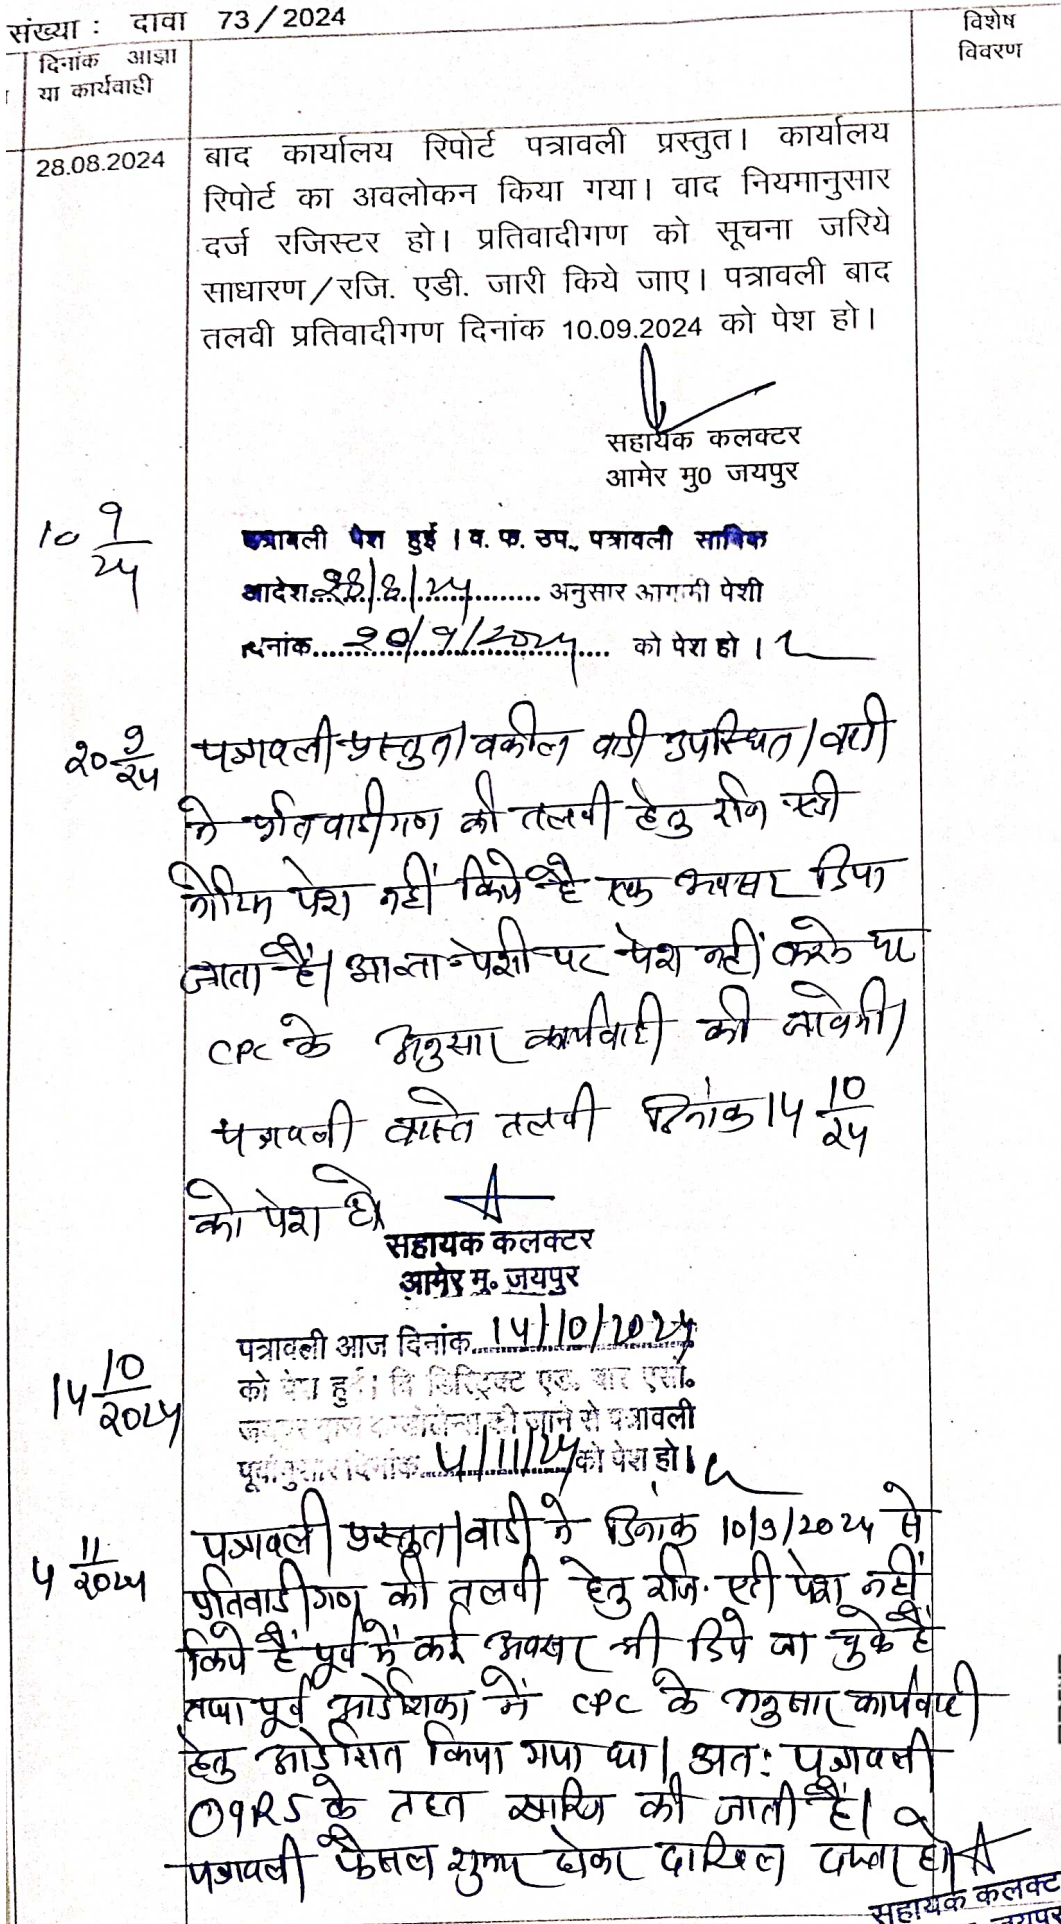 संख्या : दावा 73/2024
विशेष
विवरण
दिनांक आज्ञा
या कार्यवाही
28.08.2024
बाद कार्यालय रिपोर्ट पत्रावली प्रस्तुत। कार्यालय
रिपोर्ट का अवलोकन किया गया। वाद नियमानुसार
दर्ज रजिस्टर हो। प्रतिवादीगण को सूचना जरिये
साधारण/रजि. एडी. जारी किये जाए। पत्रावली बाद
तलवी प्रतिवादीगण दिनांक 10.09.2024 को पेश हो।
सहायक कलक्टर
आमेर मु0 जयपुर
10 9/24
पत्रावली पेश हुई । व. फ. उप., पत्रावली साबिक
आदेश 28/8/24 अनुसार आगामी पेशी
दिनांक 20/9/2024 को पेश हो ।
20 9/24
पत्रावली प्रस्तुत। वकील वादी उपस्थित। वादी
ने प्रतिवादीगण की तलवी हेतु रजि एडी
नोटिस पेश नहीं किये है एक अवसर दिया
जाता है। आगामी पेशी पर पेश नहीं करने पर
CPC के अनुसार कार्यवाही की जावेगी।
पत्रावली वास्ते तलवी दिनांक 14 10/24
को पेश हो
सहायक कलक्टर
आमेर मु. जयपुर
14 10/2024
पत्रावली आज दिनांक 14/10/2024
को पेश हुई। दि डिस्ट्रिक्ट एड. बार एसो.
जयपुर द्वारा की जाने से पत्रावली
पूर्वानुसार दिनांक 4/11/24 को पेश हो।
4 11/2024
पत्रावली प्रस्तुत। वादी ने दिनांक 10/9/2024 से
प्रतिवादीगण की तलवी हेतु रजि. एडी पेश नहीं
किये हैं पूर्व में कई अवसर भी दिये जा चुके हैं
तथा पूर्व आदेशिका में CPC के अनुसार कार्यवाही
हेतु आदेशित किया गया था। अतः पत्रावली
O9R5 के तहत खारिज की जाती है।
पत्रावली फैसल शुमार होकर दाखिल दफ्तर हो।
सहायक कलक्ट
जयपुर